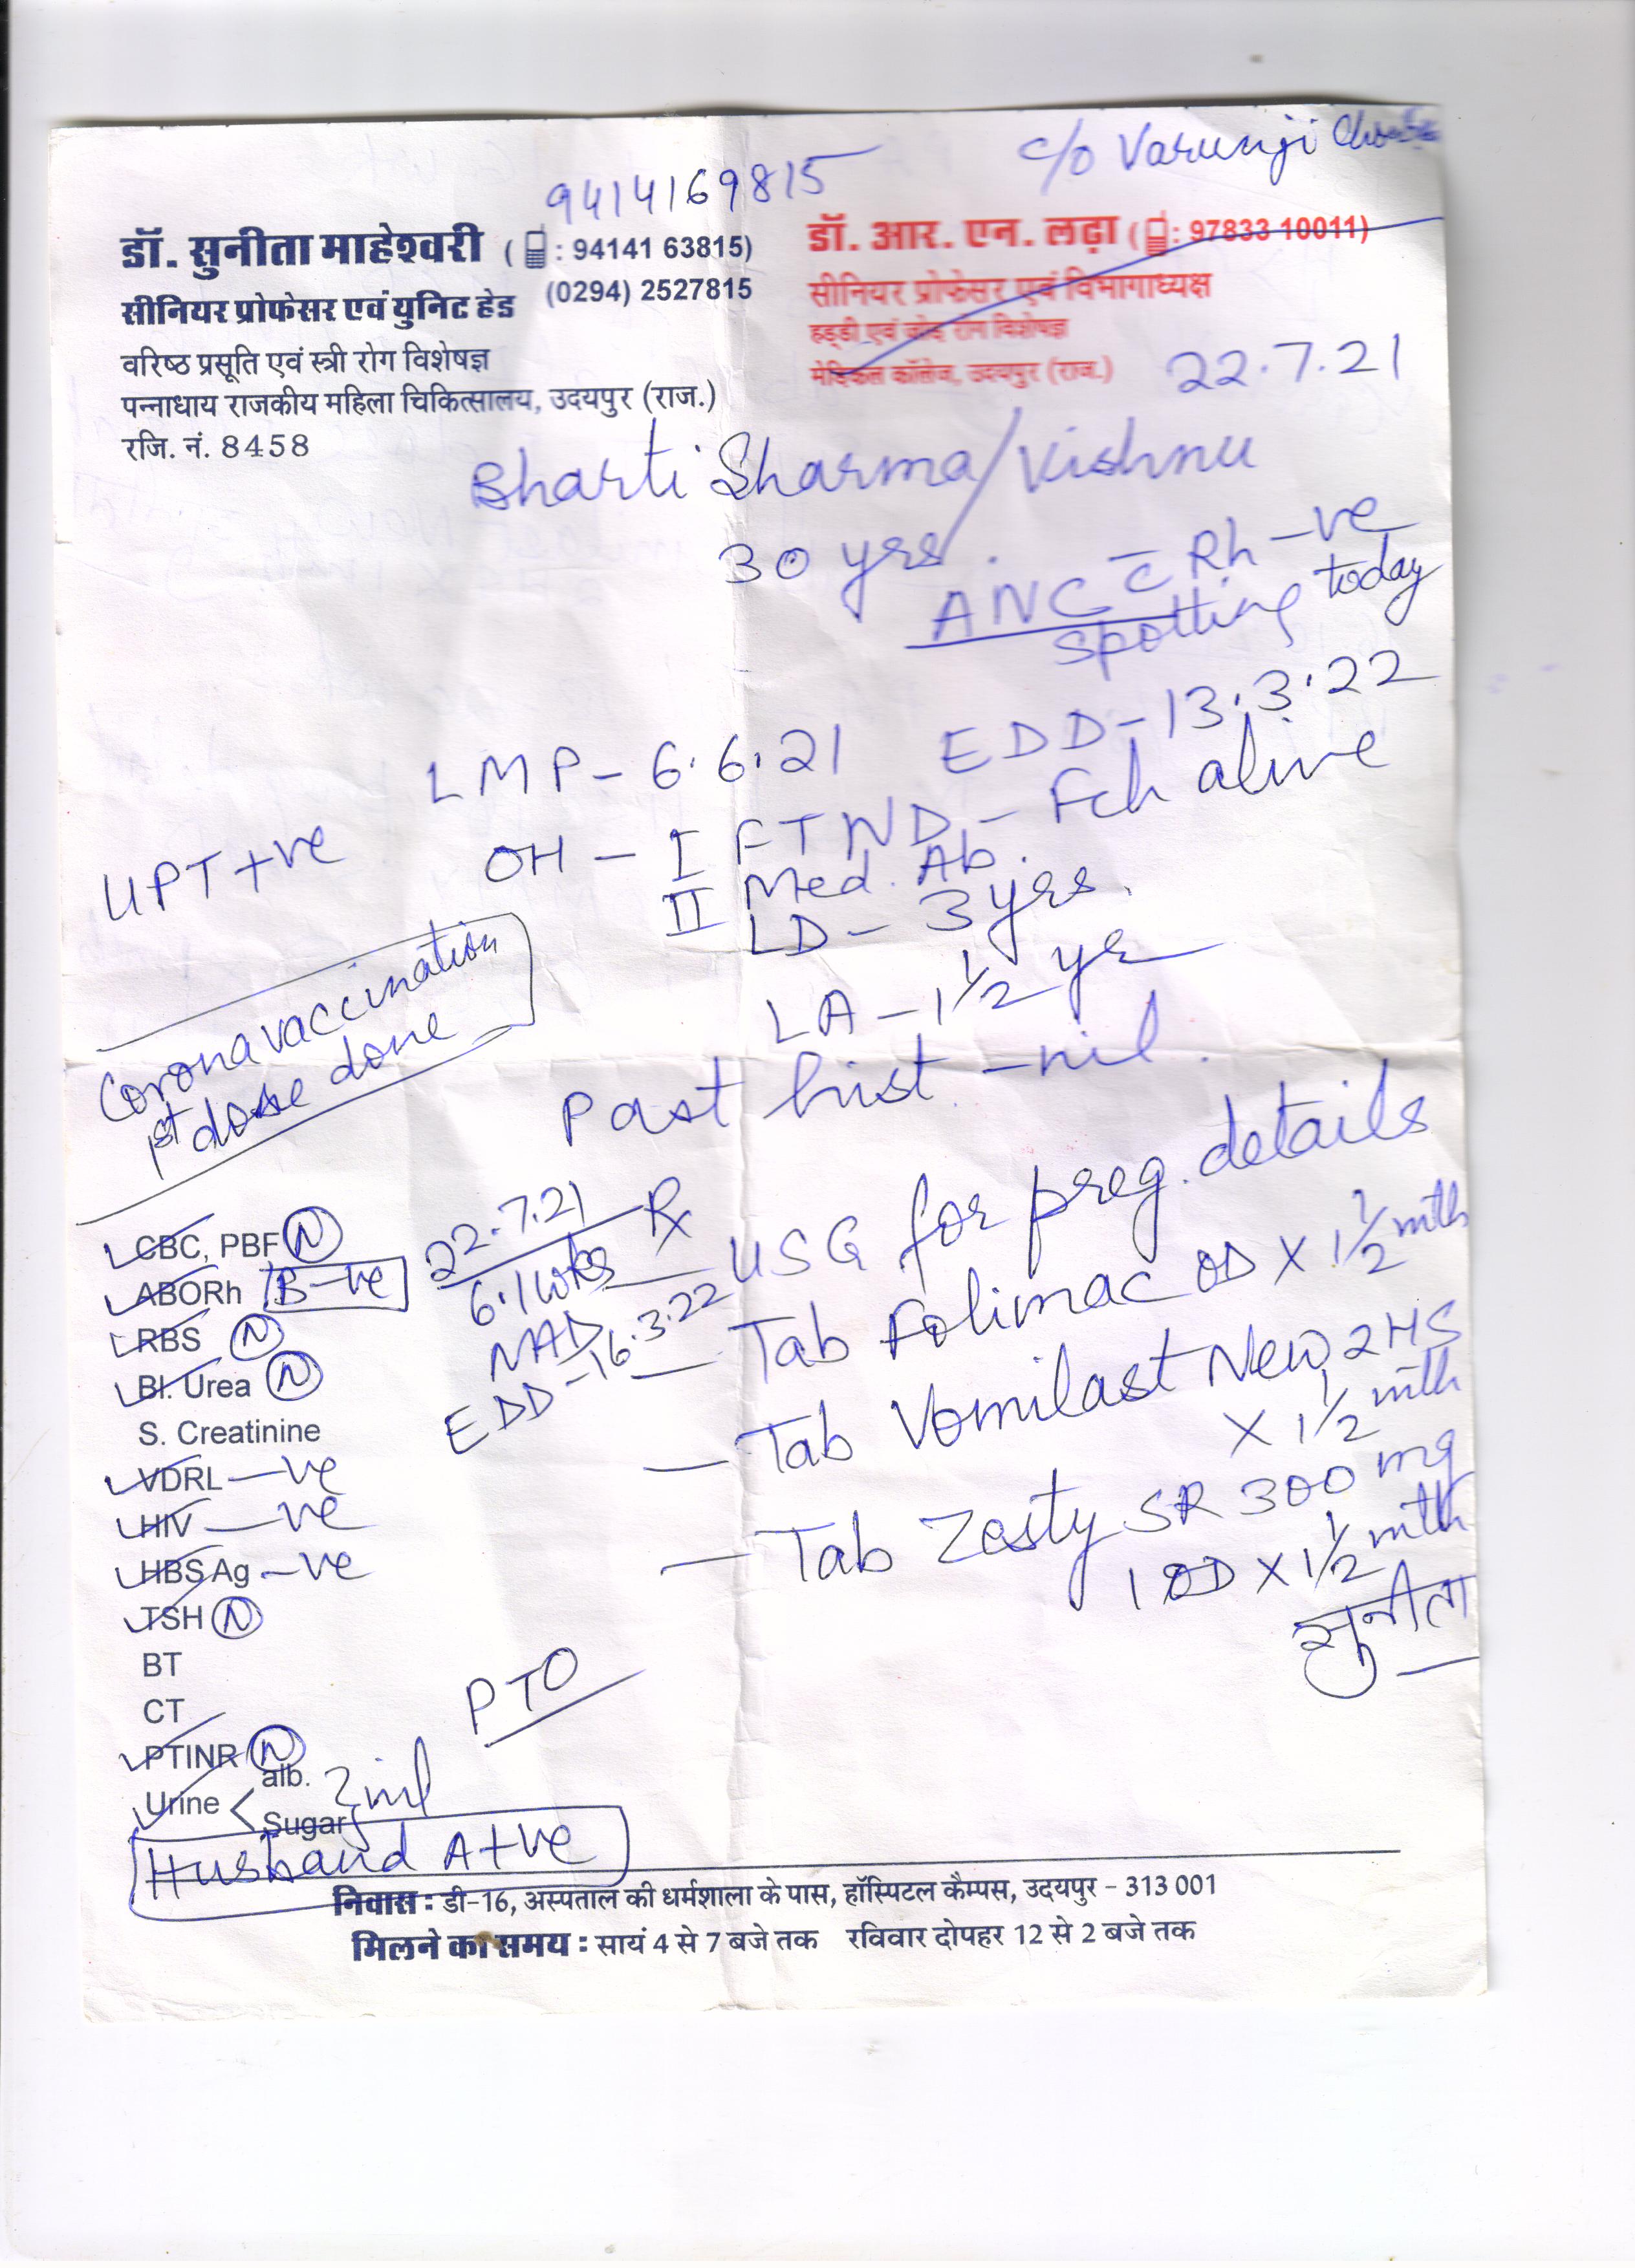 c/o Varunji
9414169815
डॉ. सुनीता माहेश्वरी ( : 94141 63815)
(0294) 2527815
सीनियर प्रोफेसर एवं युनिट हेड
वरिष्ठ प्रसूति एवं स्त्री रोग विशेषज्ञ
पन्नाधाय राजकीय महिला चिकित्सालय, उदयपुर (राज.)
रजि. नं. 8458
डॉ. आर. एन. लढ़ा ( : 97833 10011)
सीनियर प्रोफेसर एवं विभागाध्यक्ष
हड्डी एवं जोड़ रोग विशेषज्ञ
मेडिकल कॉलेज, उदयपुर (राज.)
22.7.21
Bharti Sharma/Vishnu
30 yrs.
ANC c̄ Rh -ve
spotting today
LMP - 6.6.21 EDD - 13.3.22
UPT +ve
OH - I FTND - Fch alive
II Med. Ab.
LD - 3 yrs.
LA - 1 1/2 yr
Corona vaccination
1st dose done
Past hist. - nil.
CBC, PBF (N)
ABORh B-ve
RBS (N)
Bl. Urea (N)
S. Creatinine
VDRL -ve
HIV -ve
HBSAg -ve
TSH (N)
BT
CT
PTINR (N)
Urine < alb.
Sugar } nil
Husband A+ve
22.7.21
6.1 wks
NAD
EDD - 16.3.22
Rx
USG for preg. details
- Tab Folimac OD X 1 1/2 mth
- Tab Vomilast New 2 HS
X 1 1/2 mth
- Tab Zesty SR 300 mg
1 OD X 1 1/2 mth
सुनीता
PTO
निवास : डी-16, अस्पताल की धर्मशाला के पास, हॉस्पिटल कैम्पस, उदयपुर - 313 001
मिलने का समय : सायं 4 से 7 बजे तक रविवार दोपहर 12 से 2 बजे तक